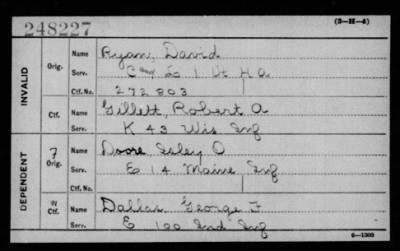 248227
(3-H-4)
INVALID
Orig. Name Ryan, David
Serv. E 1 Vt H A
Ctf. No. 272803
Ctf. Name Gillett, Robert A
Serv. K 43 Wis Inf
DEPENDENT
Orig. Name O
Serv. E 14 Maine Inf
Ctf. No.
W Ctf. Name Dallas, George F
Serv. E 100 Ind Inf
6—1300